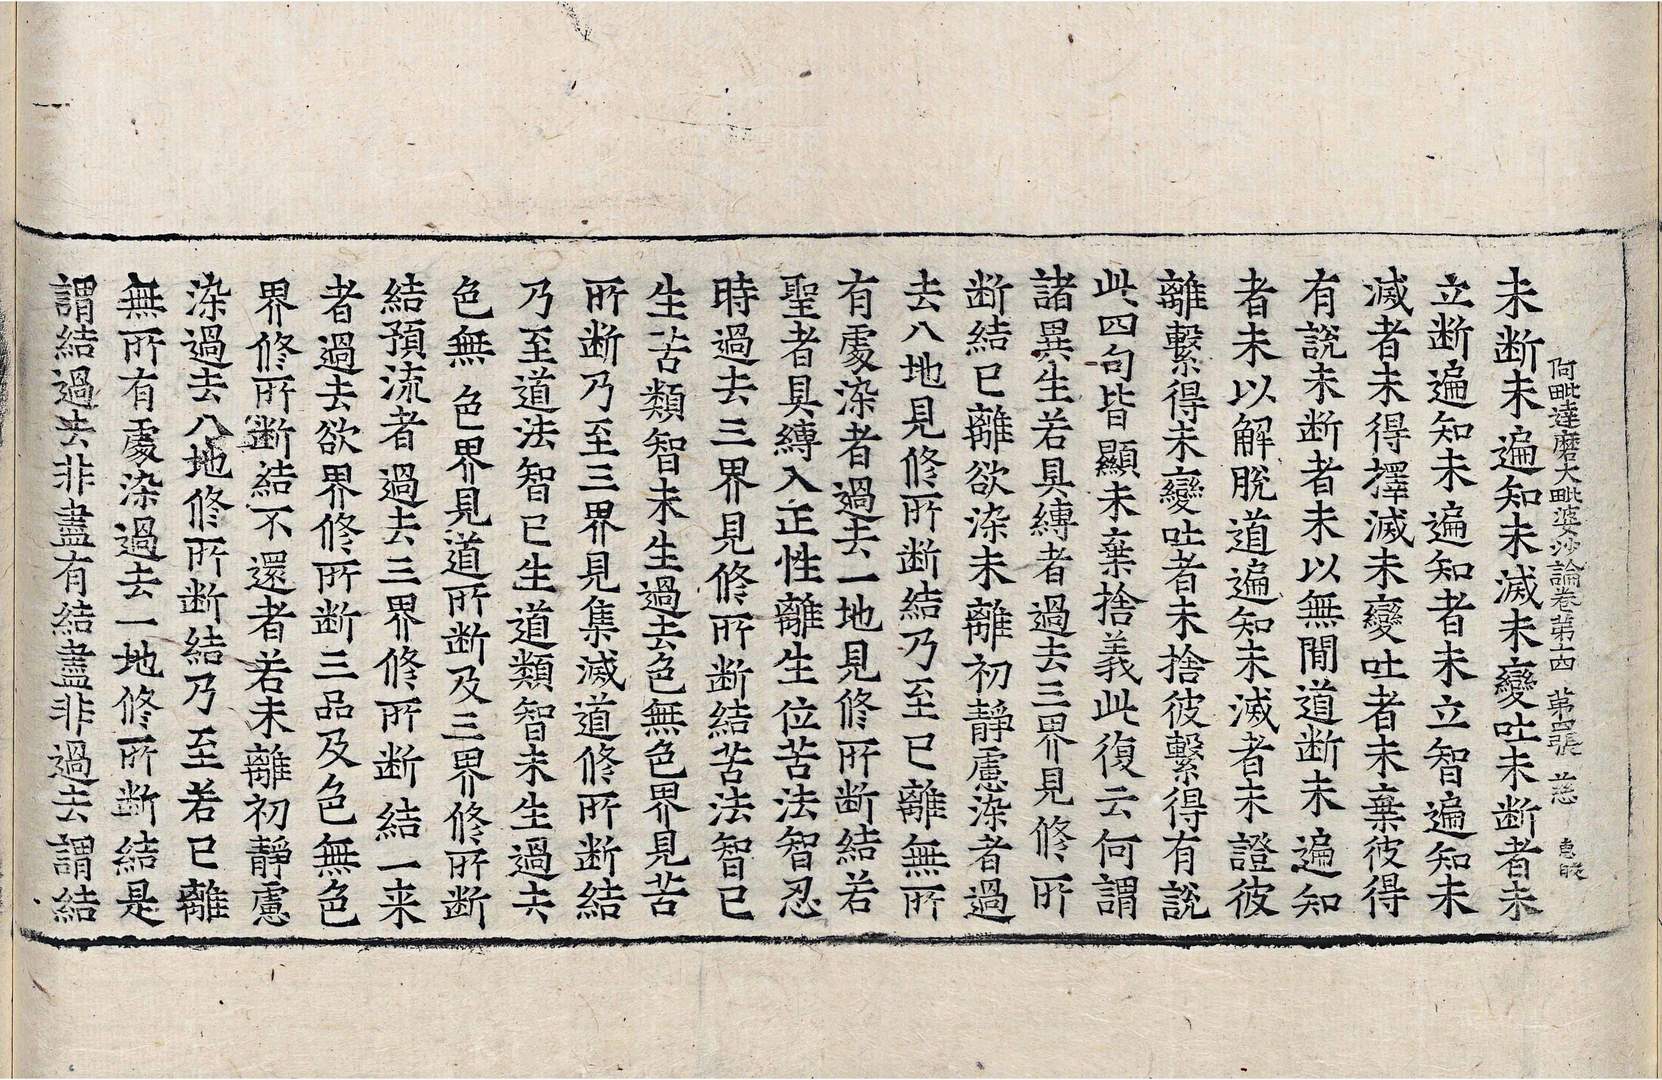 阿毗達磨大毗婆沙論卷第六十四 第四張 慈 惠眼
未断未遍知未滅未變吐未断者未
立断遍知未遍知者未立智遍知未
滅者未得擇滅未變吐者未棄彼得
有說未断者未以無間道断未遍知
者未以解脫道遍知未滅者未證彼
離繫得未變吐者未捨彼繫得有說
此四句皆顯未棄捨義此復云何謂
諸異生若具縛者過去三界見修所
断結已離欲染未離初靜慮染者過
去八地見修所断結乃至已離無所
有處染者過去一地見修所断結若
聖者具縛入正性離生位苦法智忍
時過去三界見修所断結苦法智已
生苦類智未生過去色無色界見苦
所断乃至三界見集滅道修所断結
乃至道法智已生道類智未生過去
色無色界見道所断及三界修所断
結預流者過去三界修所断結一来
者過去欲界修所断三品及色無色
界修所断結不還者若未離初靜慮
染過去八地修所断結乃至若已離
無所有處染過去一地修所断結是
謂結過去非盡有結盡非過去謂結